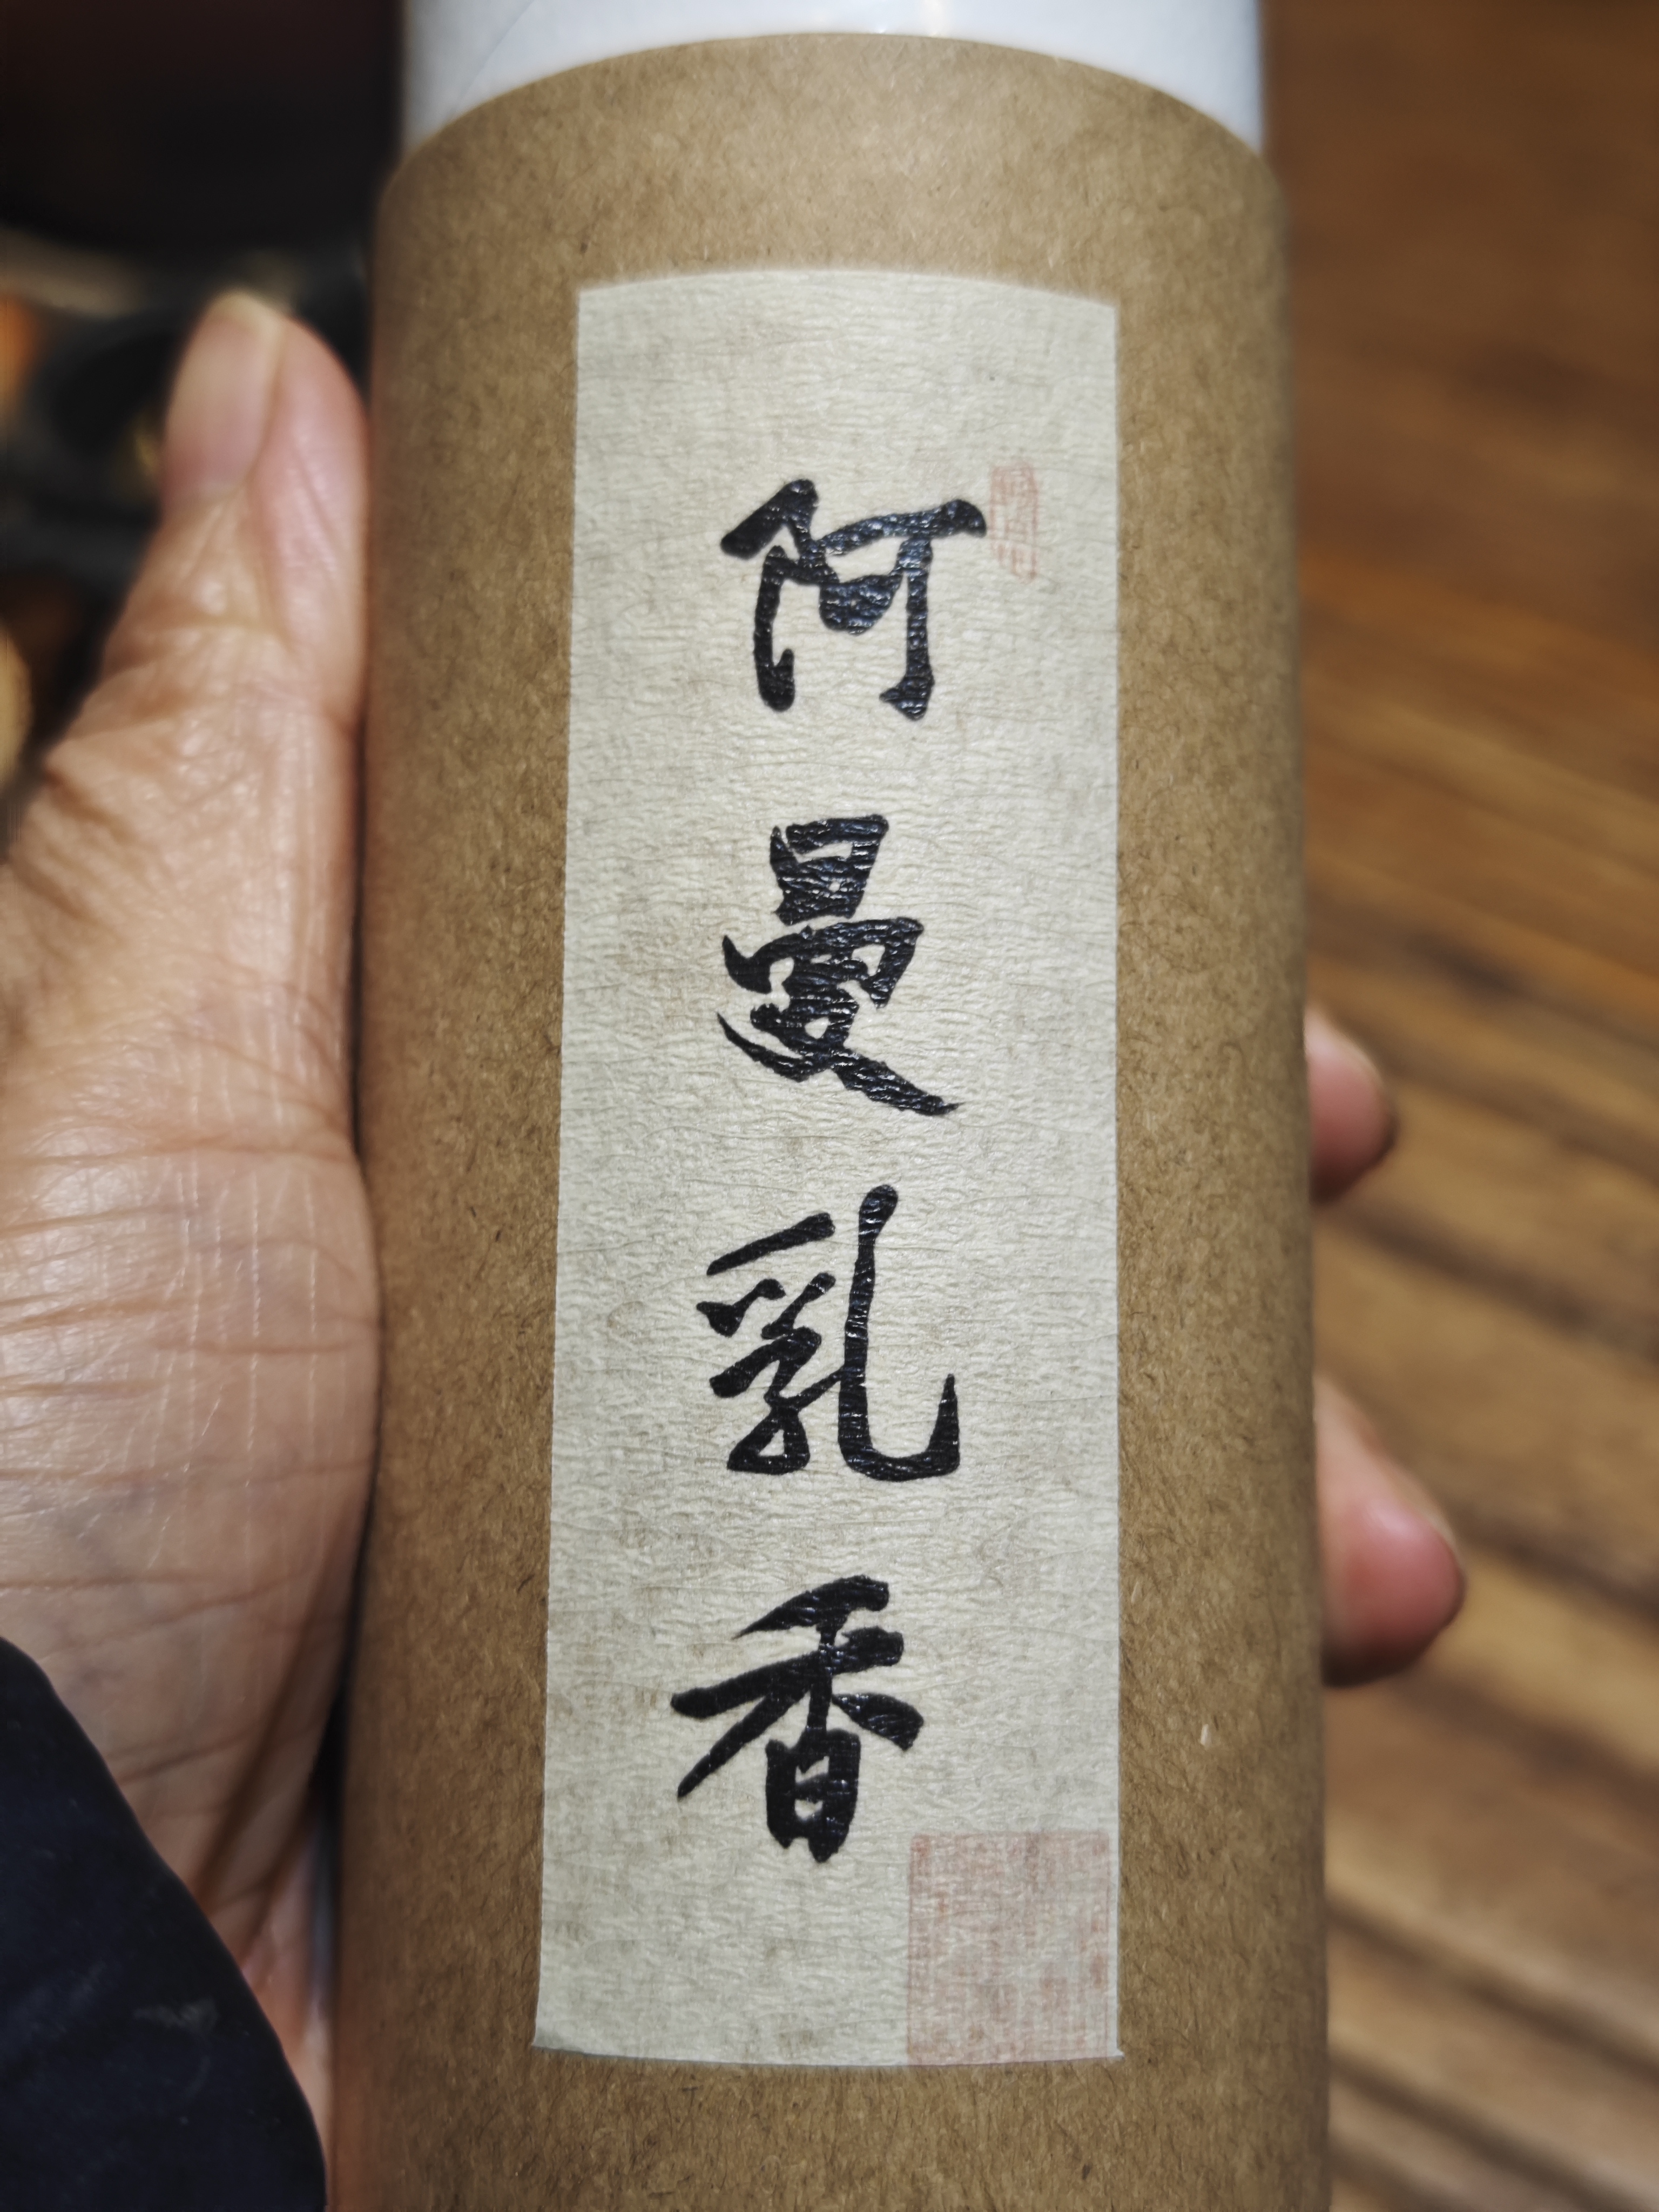 阿曼乳香